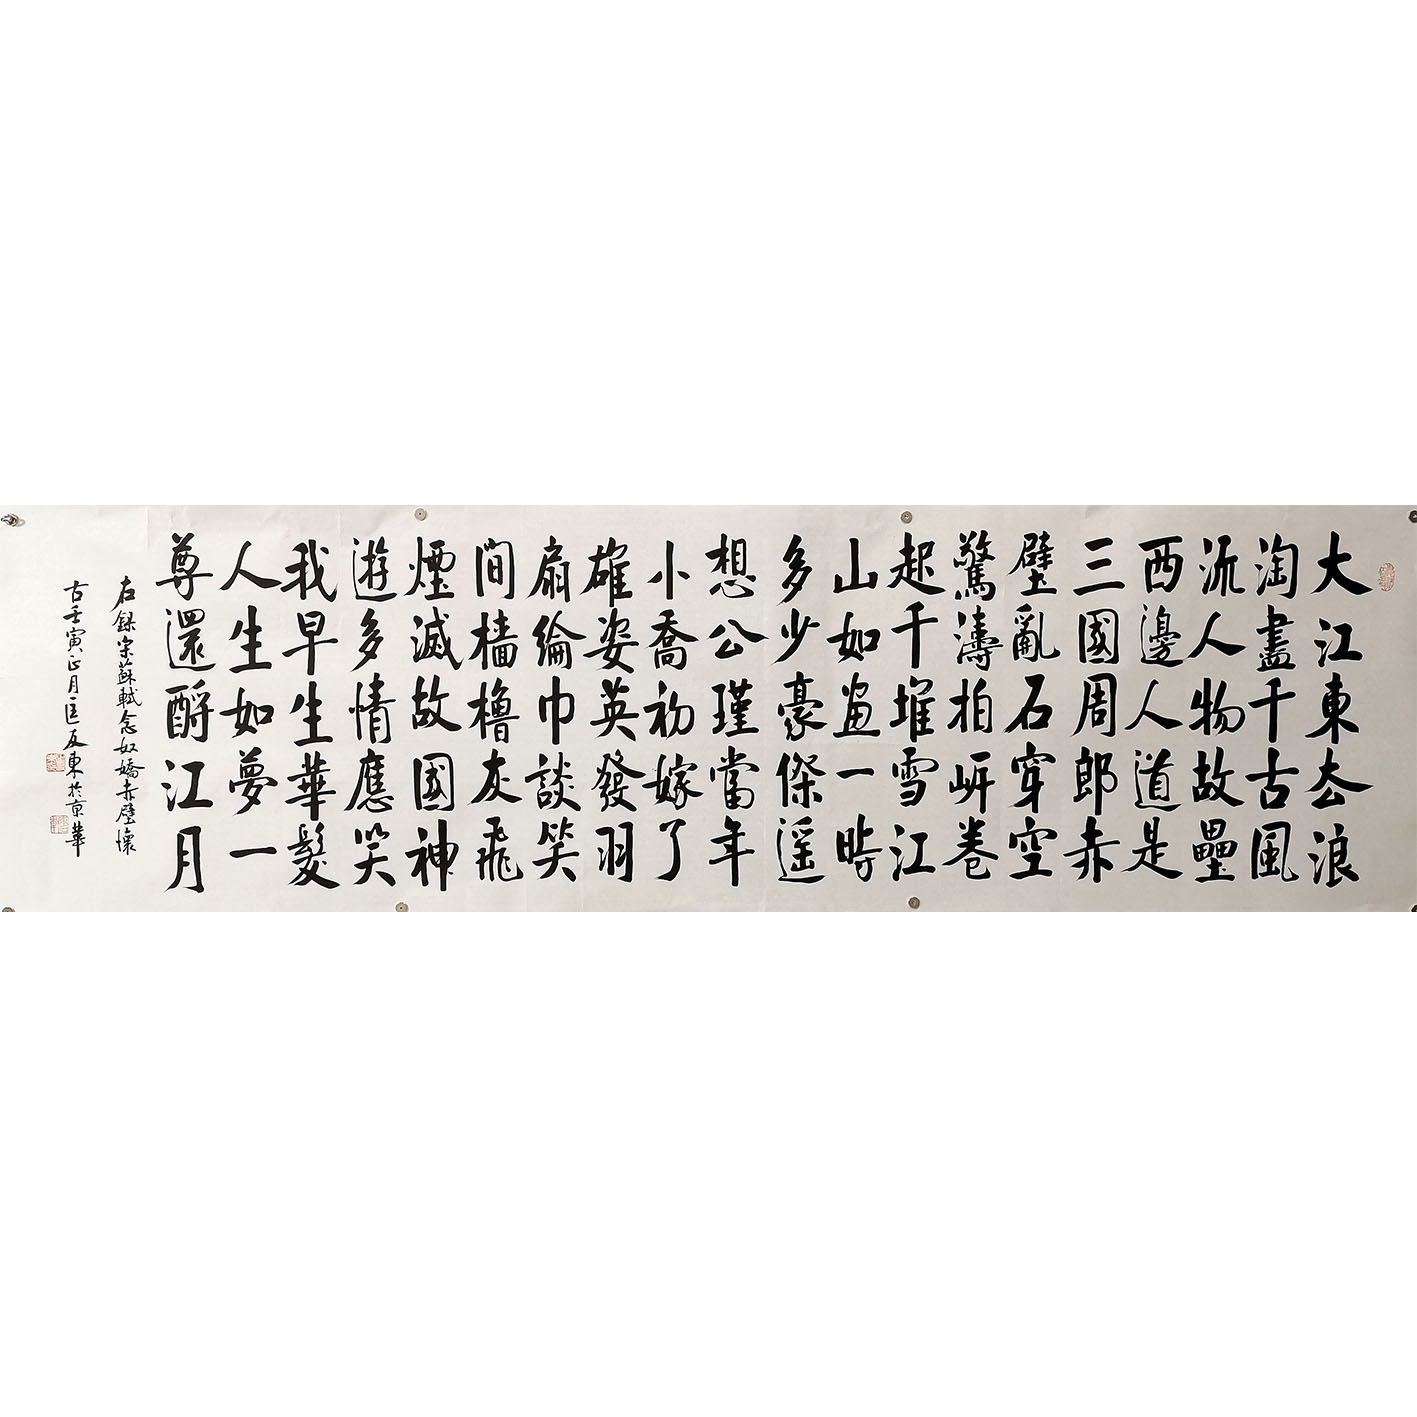 大江東去浪
淘盡千古風
流人物故壘
西邊人道是
三國周郎赤
壁亂石穿空
驚濤拍岍卷
起千堆雪江
山如畫一時
多少豪傑遥
想公瑾當年
小喬初嫁了
雄姿英發羽
扇綸巾談笑
間檣櫓灰飛
煙滅故國神
遊多情應笑
我早生華髮
人生如夢一
尊還酹江月
右錄宋蘇軾念奴嬌赤壁懷
古壬寅正月匡友東於京華